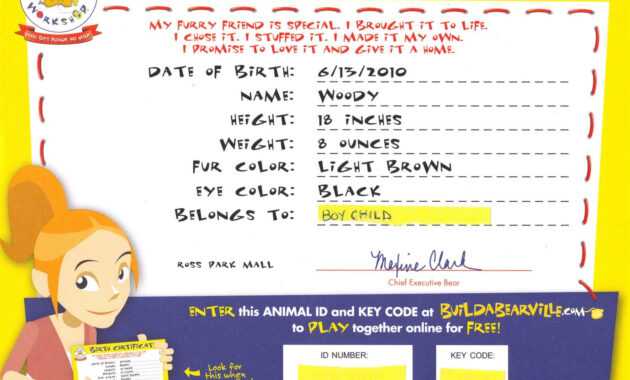 WORKSHOP
MY FURRY FRIEND IS SPECIAL. I BROUGHT IT TO LIFE.
I CHOSE IT. I STUFFED IT. I MADE IT MY OWN.
I PROMISE TO LOVE IT AND GIVE IT A HOME.
DATE OF BIRTH: 6/13/2010
NAME: WOODY
HEIGHT: 18 INCHES
WEIGHT: 8 OUNCES
FUR COLOR: LIGHT BROWN
EYE COLOR: BLACK
BELONGS TO: BOY CHILD
ROSS PARK MALL
Maxine Clark
Chief Executive Bear
ENTER this ANIMAL ID and KEY CODE at BUILDABEARVILLE.COM
to PLAY together online for FREE!
BIRTH CERTIFICATE
Look for
this when
ID NUMBER:
KEY CODE: